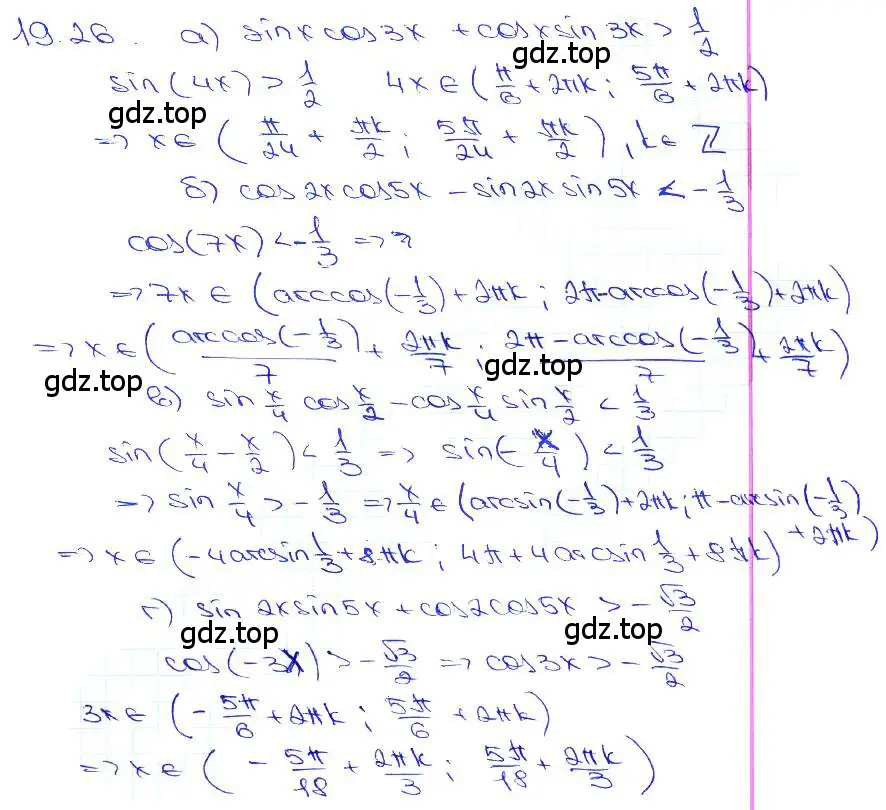 19.26. а) sinx cos3x + cosx sin 3x > 1/2
gdz.top
sin(4x) > 1/2 4x ∈ (π/6 + 2πk ; 5π/6 + 2πk)
gdz.top gdz.top
=> x ∈ (π/24 + πk/2 ; 5π/24 + πk/2), k ∈ Z
б) cos2x cos5x - sin2x sin5x < -1/3
cos(7x) < -1/3 =>
=> 7x ∈ (arccos(-1/3) + 2πk ; 2π - arccos(-1/3) + 2πk)
=> x ∈ (arccos(-1/3)/7 + 2πk/7 ; 2π - arccos(-1/3)/7 + 2πk/7)
gdz.top gdz.top
в) sin x/4 cos x/2 - cos x/4 sin x/2 < 1/3
sin(x/4 - x/2) < 1/3 => sin(-x/4) < 1/3
=> sin x/4 > -1/3 => x/4 ∈ (arcsin(-1/3) + 2πk ; π - arcsin(-1/3)
+ 2πk)
=> x ∈ (-4arcsin 1/3 + 8πk ; 4π + 4arcsin 1/3 + 8πk)
г) sin 2x sin5x + cos2cos5x > -√3/2
gdz.top gdz.top
cos(-3x) > -√3/2 => cos3x > -√3/2
3x ∈ (-5π/6 + 2πk ; 5π/6 + 2πk)
=> x ∈ (-5π/18 + 2πk/3 ; 5π/18 + 2πk/3)